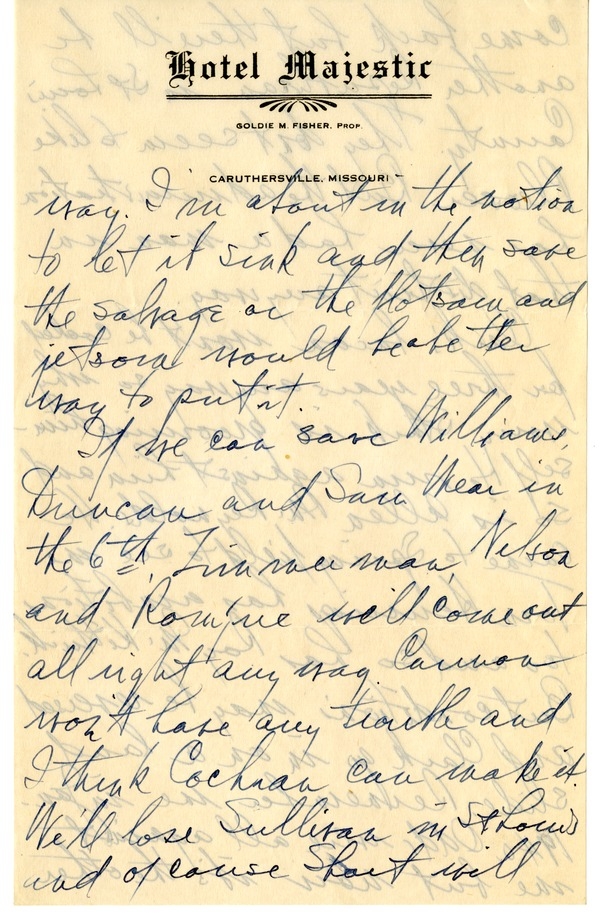 Hotel Majestic
GOLDIE M. FISHER, PROP.
CARUTHERSVILLE, MISSOURI
way. I'm about in the notion
to let it sink and then save
the salvage or the flotsam and
jetsom would be a better
way to put it.
If we can save Williams,
Duncan and Sam Wear in
the 6th, Zimmerman, Nelson
and Romjue will come out
all right any way. Cannon
won't have any trouble and
I think Cochran can make it.
We'll lose Sullivan in St Louis
and of cause Short will